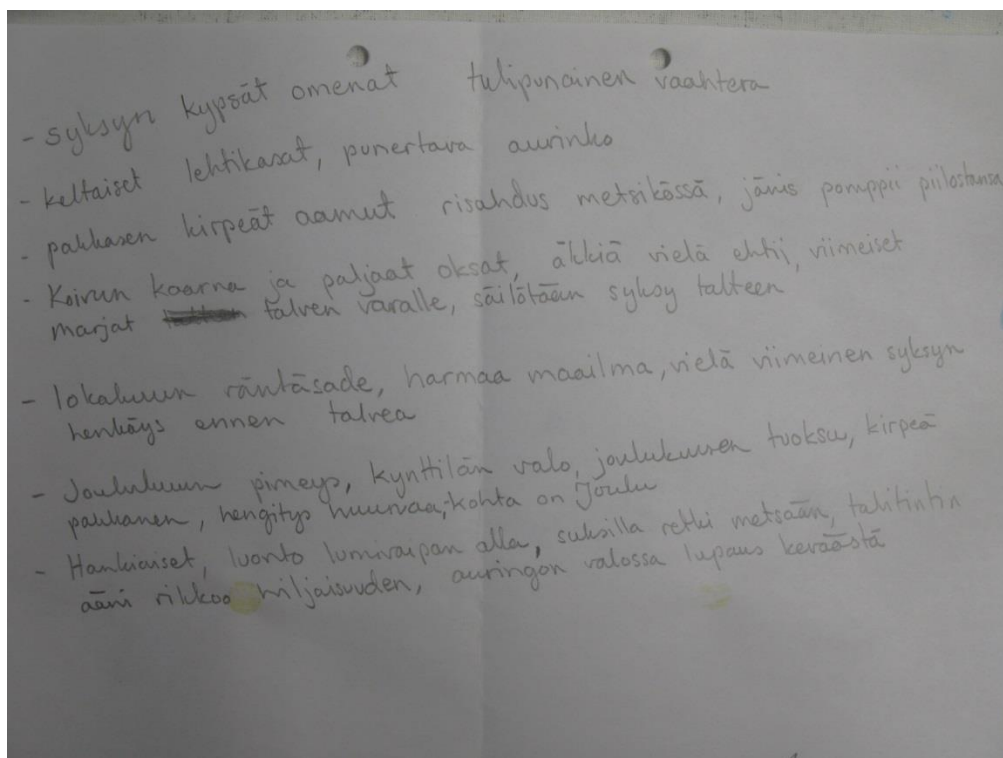 - syksyn kypsät omenat tulipunainen vaahtera
- keltaiset lehtikasat, punertava aurinko
- pakkasen kirpeät aamut risahdus metsikössä, jänis pomppii piilostansa
- Koivun kaarna ja paljaat oksat, äkkiä vielä ehtii, viimeiset
marjat talven varalle, säilötään syksy talteen
- lokakuun räntäsade, harmaa maailma, vielä viimeinen syksyn
henkäys ennen talvea
- Joulukuun pimeys, kynttilän valo, joulukuusen tuoksu, kirpeä
pakkanen, hengitys huuruaa, kohta on Joulu
- Hankiaiset, luonto lumivaipan alla, suksilla retki metsään, talitintin
ääni rikkoo hiljaisuuden, auringon valossa lupaus keväästä